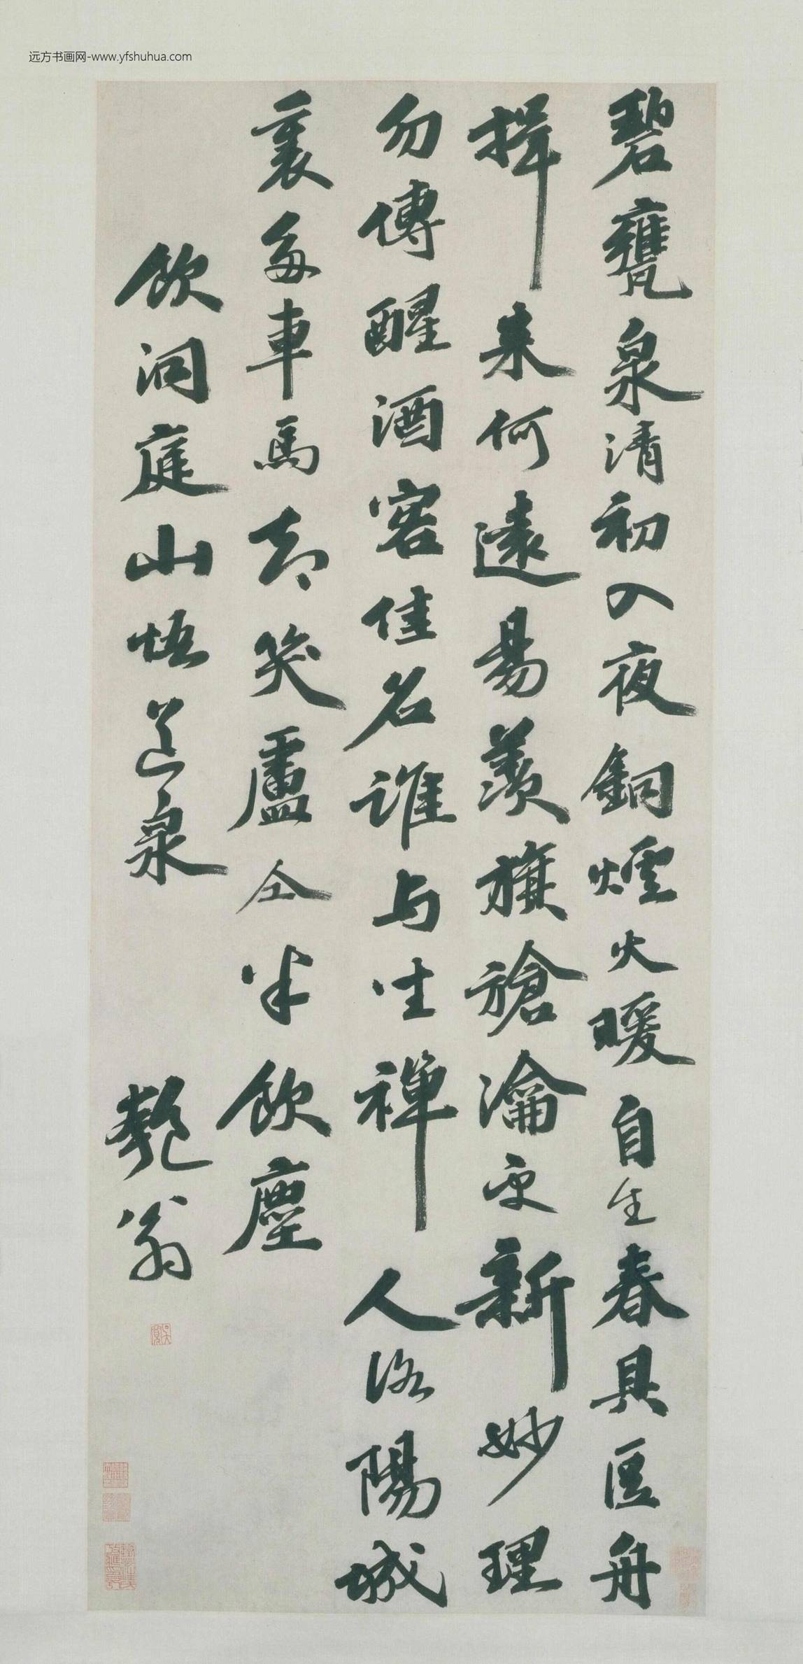 远方书画网-www.yfshuhua.com
碧甕泉清初入夜銅爐火暖自生春具區舟
楫來何遠陽羨旗槍瀹更新妙理
勿傳醒酒客佳名誰与坐禪人洛陽城
裏多車馬却笑盧仝半飲塵
飲洞庭山悟道泉
匏翁